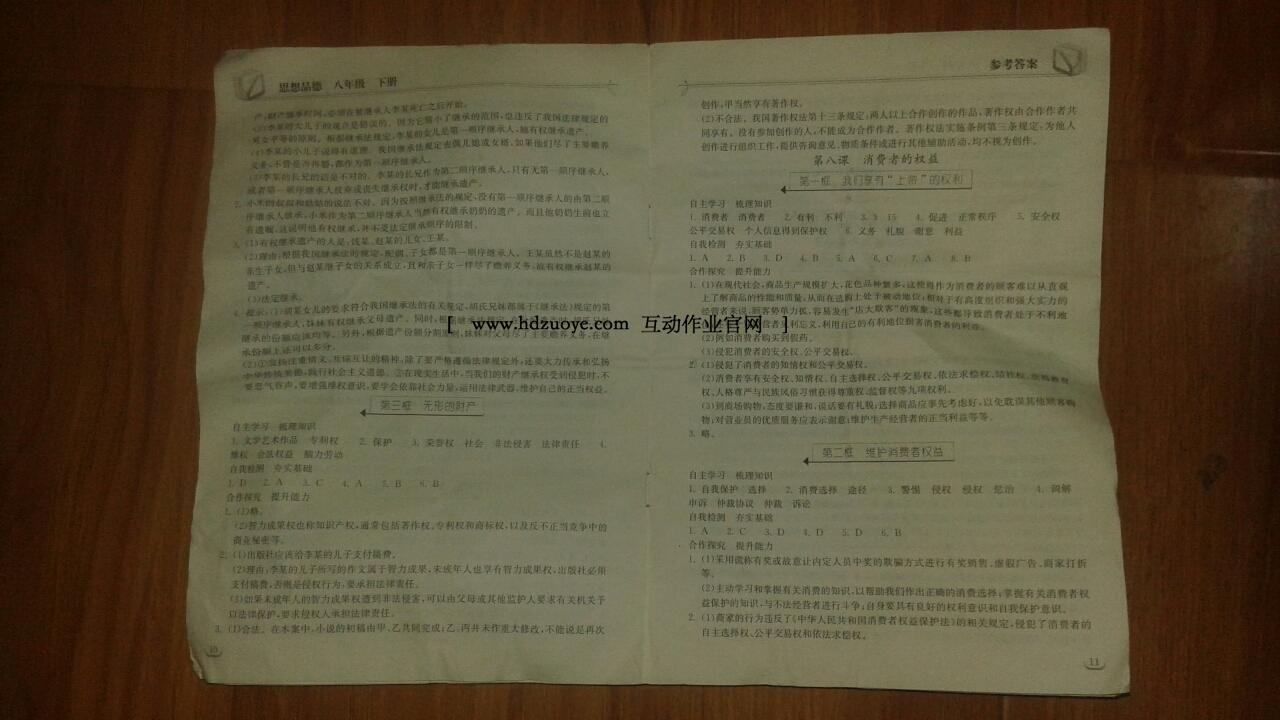 思想品德 八年级 下册
产;财产继承时间,必须在被继承人李某死亡之后开始。
(3)李某的大儿子的观点是错误的。因为它缩小了继承的范围,也违反了我国法律规定的
男女平等的原则。根据继承法规定,李某的女儿是第一顺序继承人,她有权继承遗产。
(4)李某的小儿子说得有道理。我国继承法规定丧偶儿媳或女婿,如果他们尽了主要赡养
义务,不管是否再婚,都作为第一顺序继承人。
(5)李某的长兄的话是不对的。李某的长兄作为第二顺序继承人,只有无第一顺序继承人,
或者第一顺序继承人放弃或丧失继承权时,才能继承遗产。
2. 小米的叔叔和姑姑的说法不对。因为按照继承法的规定,没有第一顺序继承人的由第二顺
序继承人继承,小米作为第二顺序继承人当然有权继承奶奶的遗产。而且他奶奶生前也立
有遗嘱,这说明他有权继承,并不受法定继承顺序的限制。
3. (1)有权继承遗产的人是:钱某、赵某的儿女、王某。
(2)理由:根据我国继承法的规定,配偶、子女都是第一顺序继承人。王某虽然不是赵某的
亲生子女,但与赵某继子女的关系成立,且和亲子女一样尽了赡养义务,故有权继承赵某的
遗产。
(3)法定继承。
4. 提示:(1)胡某女儿的要求符合我国继承法的有关规定。胡氏兄妹都属于《继承法》规定的第
一顺序继承人,妹妹有权继承父母遗产。同时,根
继承的份额应该均等。另外,根据遗产份额分割原则,妹妹对父母尽了主要赡养义务,在继
承份额上还可以多分。
(2)①发扬注重情义、互谅互让的精神,除了要严格遵循法律规定外,还要大力传承和弘扬
中华传统美德,践行社会主义道德。②在现实生活中,当我们的财产继承权受到侵犯时,不
要忍气吞声,要增强维权意识,要学会依靠社会力量,运用法律武器,维护自己的正当权益。
第三框 无形的财产
自主学习 梳理知识
1. 文学艺术作品 专利权 2. 保护 3. 荣誉权 社会 非法侵害 法律责任 4.
维权 合法权益 脑力劳动
自我检测 夯实基础
1. D 2. A 3. C 4. A 5. B 6. B
合作探究 提升能力
1. (1)略。
(2)智力成果权也称知识产权,通常包括著作权、专利权和商标权,以及反不正当竞争中的
商业秘密等。
2. (1)出版社应该给李某的儿子支付稿费。
(2)理由:李某的儿子所写的作文属于智力成果,未成年人也享有智力成果权,出版社必须
支付稿费,否则是侵权行为,要承担法律责任。
(3)如果未成年人的智力成果权遭到非法侵害,可以由父母或其他监护人要求有关机关予
以法律保护,要求侵权人承担法律责任。
3. (1)合法。在本案中,小说的初稿由甲、乙共同完成;乙、丙并未作重大修改,不能说是再次
10
参考答案
创作,甲当然享有著作权。
(2)不合法。我国著作权法第十三条规定:两人以上合作创作的作品,著作权由合作作者共
同享有。没有参加创作的人,不能成为合作作者。著作权法实施条例第三条规定,为他人
创作进行组织工作,提供咨询意见、物质条件或进行其他辅助活动,均不视为创作。
第八课 消费者的权益
第一框 我们享有“上帝”的权利
自主学习 梳理知识
1. 消费者 消费者 2. 有利 不利 3. 3 15 4. 促进 正常秩序 5. 安全权
公平交易权 个人信息得到保护权 6. 义务 礼貌 谢意 利益
自我检测 夯实基础
1. A 2. B 3. D 4. B 5. A 6. C 7. A 8. B
合作探究 提升能力
1. (1)在现代社会,商品生产规模扩大,花色品种繁多,这使得作为消费者的顾客难以从直观
上了解商品的性能和质量,从而在选购上处于被动地位;相对于有高度组织和强大实力的
经营者来说,顾客势单力孤,容易发生“店大欺客”的现象,这些都导致消费者处于不利地
见利忘义,利用自己的有利地位损害消费者的利益。
(2)例如消费者购买到假药。
(3)侵犯消费者的安全权、公平交易权。
2. (1)侵犯了消费者的知情权和公平交易权。
(2)消费者享有安全权、知情权、自主选择权、公平交易权、依法求偿权、结社权、获得教育
权、人格尊严与民族风俗习惯获得尊重权、监督权等九项权利。
(3)到商场购物,态度要谦和,说话要有礼貌;选择商品应事先考虑好,以免耽误其他顾客购
物;对营业员的优质服务应表示谢意;维护生产经营者的正当利益等等。
3. 略。
第二框 维护消费者权益
自主学习 梳理知识
1. 自我保护 选择 2. 消费选择 途径 3. 警惕 侵权 侵权 惩治 4. 调解
申诉 仲裁协议 仲裁 诉讼
自我检测 夯实基础
1. A 2. C 3. D 4. D 5. D 6. B
合作探究 提升能力
1. (1)采用谎称有奖或故意让内定人员中奖的欺骗方式进行有奖销售、虚假广告、商家打折
等。
(2)主动学习和掌握有关消费的知识,以帮助我们作出正确的消费选择;掌握有关消费者权
益保护的知识,与不法经营者进行斗争;自身要具有良好的权利意识和自我保护意识。
2. (1)商家的行为违反了《中华人民共和国消费者权益保护法》的相关规定,侵犯了消费者的
自主选择权、公平交易权和依法求偿权。
11
[ www.hdzuoye.com 互动作业官网 ]